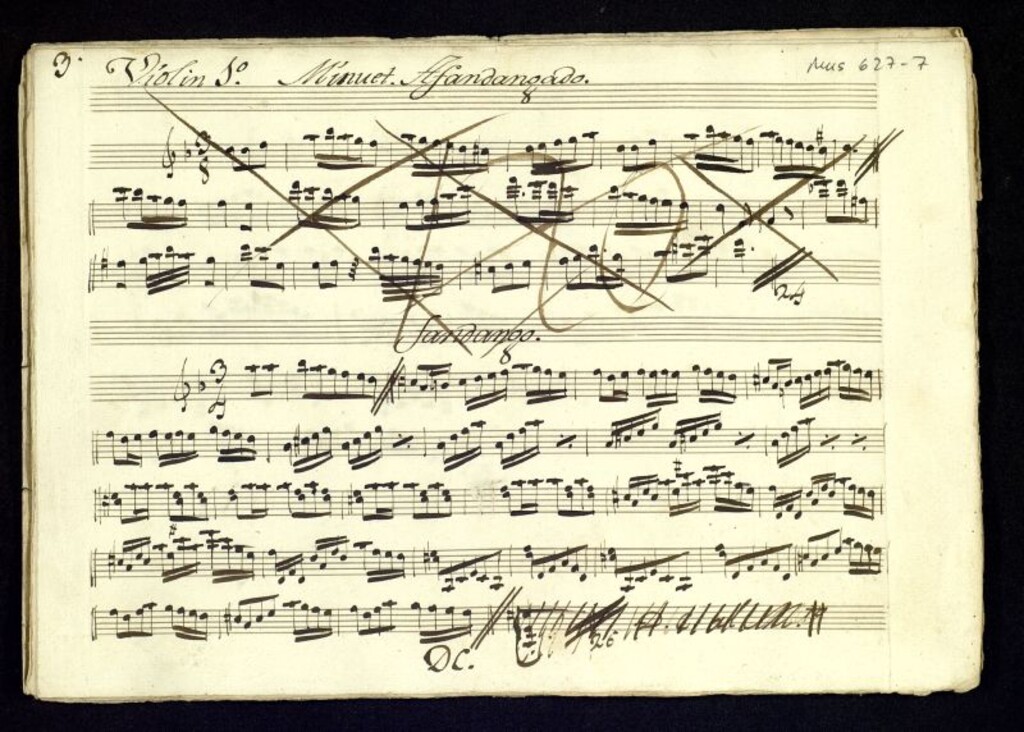 3. Violin 1º Minuet. Afandangado. Mus 627-7
3
8
24
fandango.
3
4
26
DC.